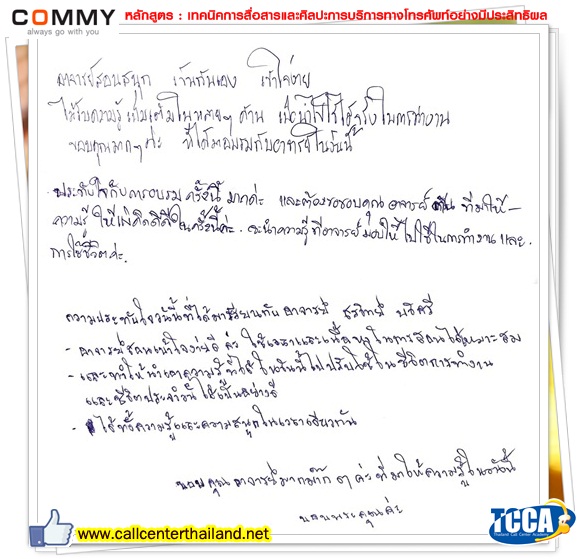 COMMY
always go with you
หลักสูตร : เทคนิคการสื่อสารและศิลปะการบริการทางโทรศัพท์อย่างมีประสิทธิผล
อาจารย์สอนสนุก เป็นกันเอง เข้าใจง่าย
ได้รับความรู้เพิ่มเติมในหลายๆ ด้าน นำไปใช้ได้จริงในการทำงาน
ขอบคุณมากๆ ค่ะ ที่ได้มาอบรมกับอาจารย์ในวันนี้
ประทับใจกับการอบรมครั้งนี้มากค่ะ และต้องขอขอบคุณอาจารย์ ที่มาให้
ความรู้ ให้แง่คิดดีดีในครั้งนี้ค่ะ. จะนำความรู้ที่อาจารย์มอบให้ไปใช้ในการทำงานและ
การใช้ชีวิตค่ะ.
ความประทับใจวันนี้ที่ได้มาเรียนกับอาจารย์
- อาจารย์สอนเข้าใจง่ายดีค่ะ ใช้เวลาและเนื้อหาในการสอนได้เหมาะสม
- และทำให้นำเอาความรู้ที่ได้ในวันนี้ไปปรับใช้ในชีวิตการทำงาน
และชีวิตประจำวันได้เป็นอย่างดี
- ได้ทั้งความรู้และความสนุกในเวลาเดียวกัน
ขอบคุณอาจารย์มากมั๊กๆ ค่ะที่มาให้ความรู้ในวันนี้
ขอบพระคุณค่ะ
www.callcenterthailand.net
TCCA
Thailand Call Center Academy